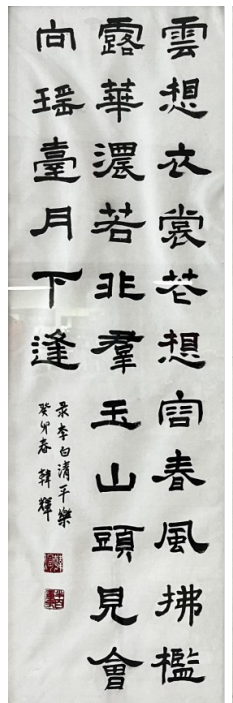 雲想衣裳花想容春風拂檻
露華濃若非羣玉山頭見會
向瑶臺月下逢
录李白清平樂
癸卯春 韓輝